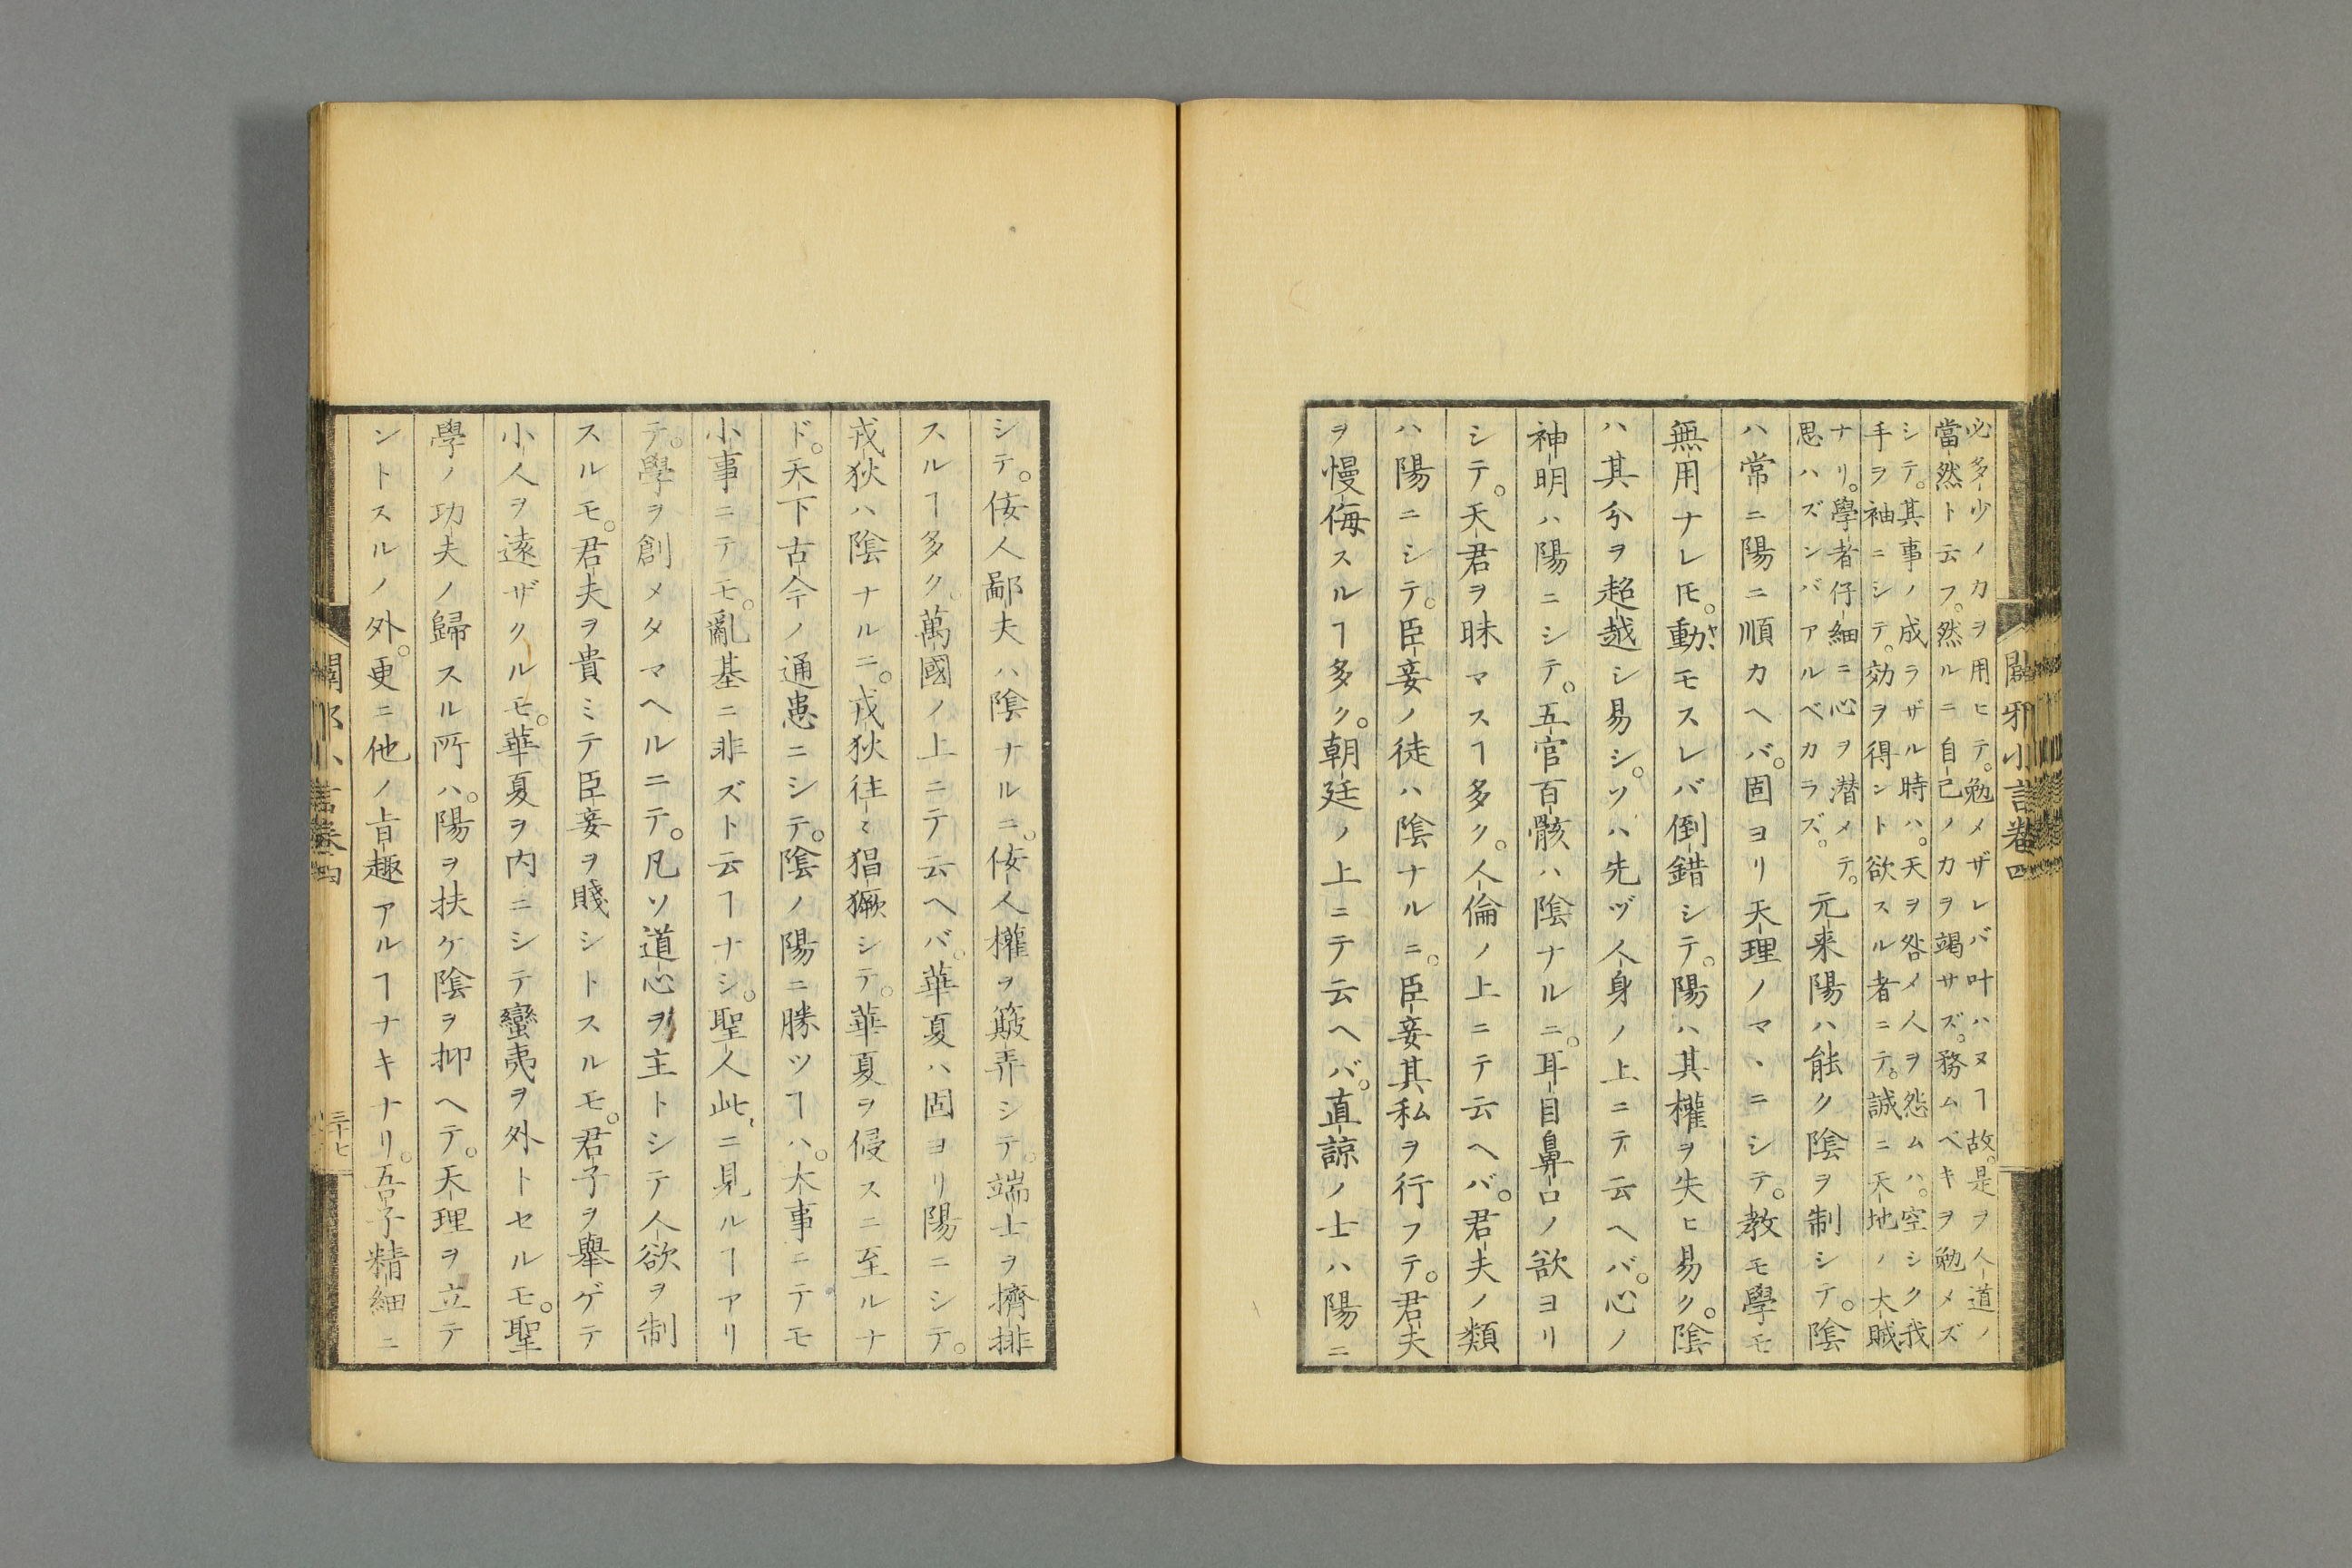 闢邪小言卷四
必多少ノ力ヲ用ヒテ。勉メザレバ叶ハヌヿ故。是ヲ人道ノ
當然ト云フ。然ルニ自己ノ力ヲ竭サズ。務ムベキヲ勉メズ
シテ。其事ノ成ラザル時ハ。天ヲ咎メ人ヲ怨ムハ。空シク我
手ヲ袖ニシテ。効ヲ得ント欲スル者ニテ。誠ニ天地ノ大賊
ナリ。學者仔細ニ心ヲ潜メテ。
思ハズンバアルベカラズ。
元来陽ハ能ク陰ヲ制シテ。陰
ハ常ニ陽ニ順カヘバ。固ヨリ天理ノマヽニシテ。教モ學モ
無用ナレ𪜈。動モスレバ倒錯シテ。陽ハ其權ヲ失ヒ易ク。陰
ハ其分ヲ超越シ易シ。ソハ先ヅ人身ノ上ニテ云ヘバ。心ノ
神明ハ陽ニシテ。五官百骸ハ陰ナルニ。耳目鼻口ノ欲ヨリ
シテ。天君ヲ昧マスヿ多ク。人倫ノ上ニテ云ヘバ。君夫ノ類
ハ陽ニシテ。臣妾ノ徒ハ陰ナルニ。臣妾其私ヲ行フテ。君夫
ヲ慢侮スルヿ多ク。朝廷ノ上ニテ云ヘバ。直諒ノ士ハ陽ニ
シテ。侫人鄙夫ハ陰ナルニ。侫人權ヲ簸弄シテ。端士ヲ擠排
スルヿ多ク。萬國ノ上ニテ云ヘバ。華夏ハ固ヨリ陽ニシテ。
戎狄ハ陰ナルニ。戎狄往〻猖獗シテ。華夏ヲ侵スニ至ルナ
ド。天下古今ノ通患ニシテ。陰ノ陽ニ勝ツヿハ。大事ニテモ
小事ニテモ。亂基ニ非ズト云ヿナシ。聖人此ニ見ルヿアリ
テ。學ヲ創メタマヘルニテ。凡ソ道心ヲ主トシテ人欲ヲ制
スルモ。君夫ヲ貴ミテ臣妾ヲ賤シトスルモ。君子ヲ舉ゲテ
小人ヲ遠ザクルモ。華夏ヲ内ニシテ蠻夷ヲ外トセルモ。聖
學ノ功夫ノ歸スル所ハ。陽ヲ扶ケ陰ヲ抑ヘテ。天理ヲ立テ
ントスルノ外。更ニ他ノ旨趣アルヿナキナリ。吾子精細ニ
闢邪小言卷四
三十七